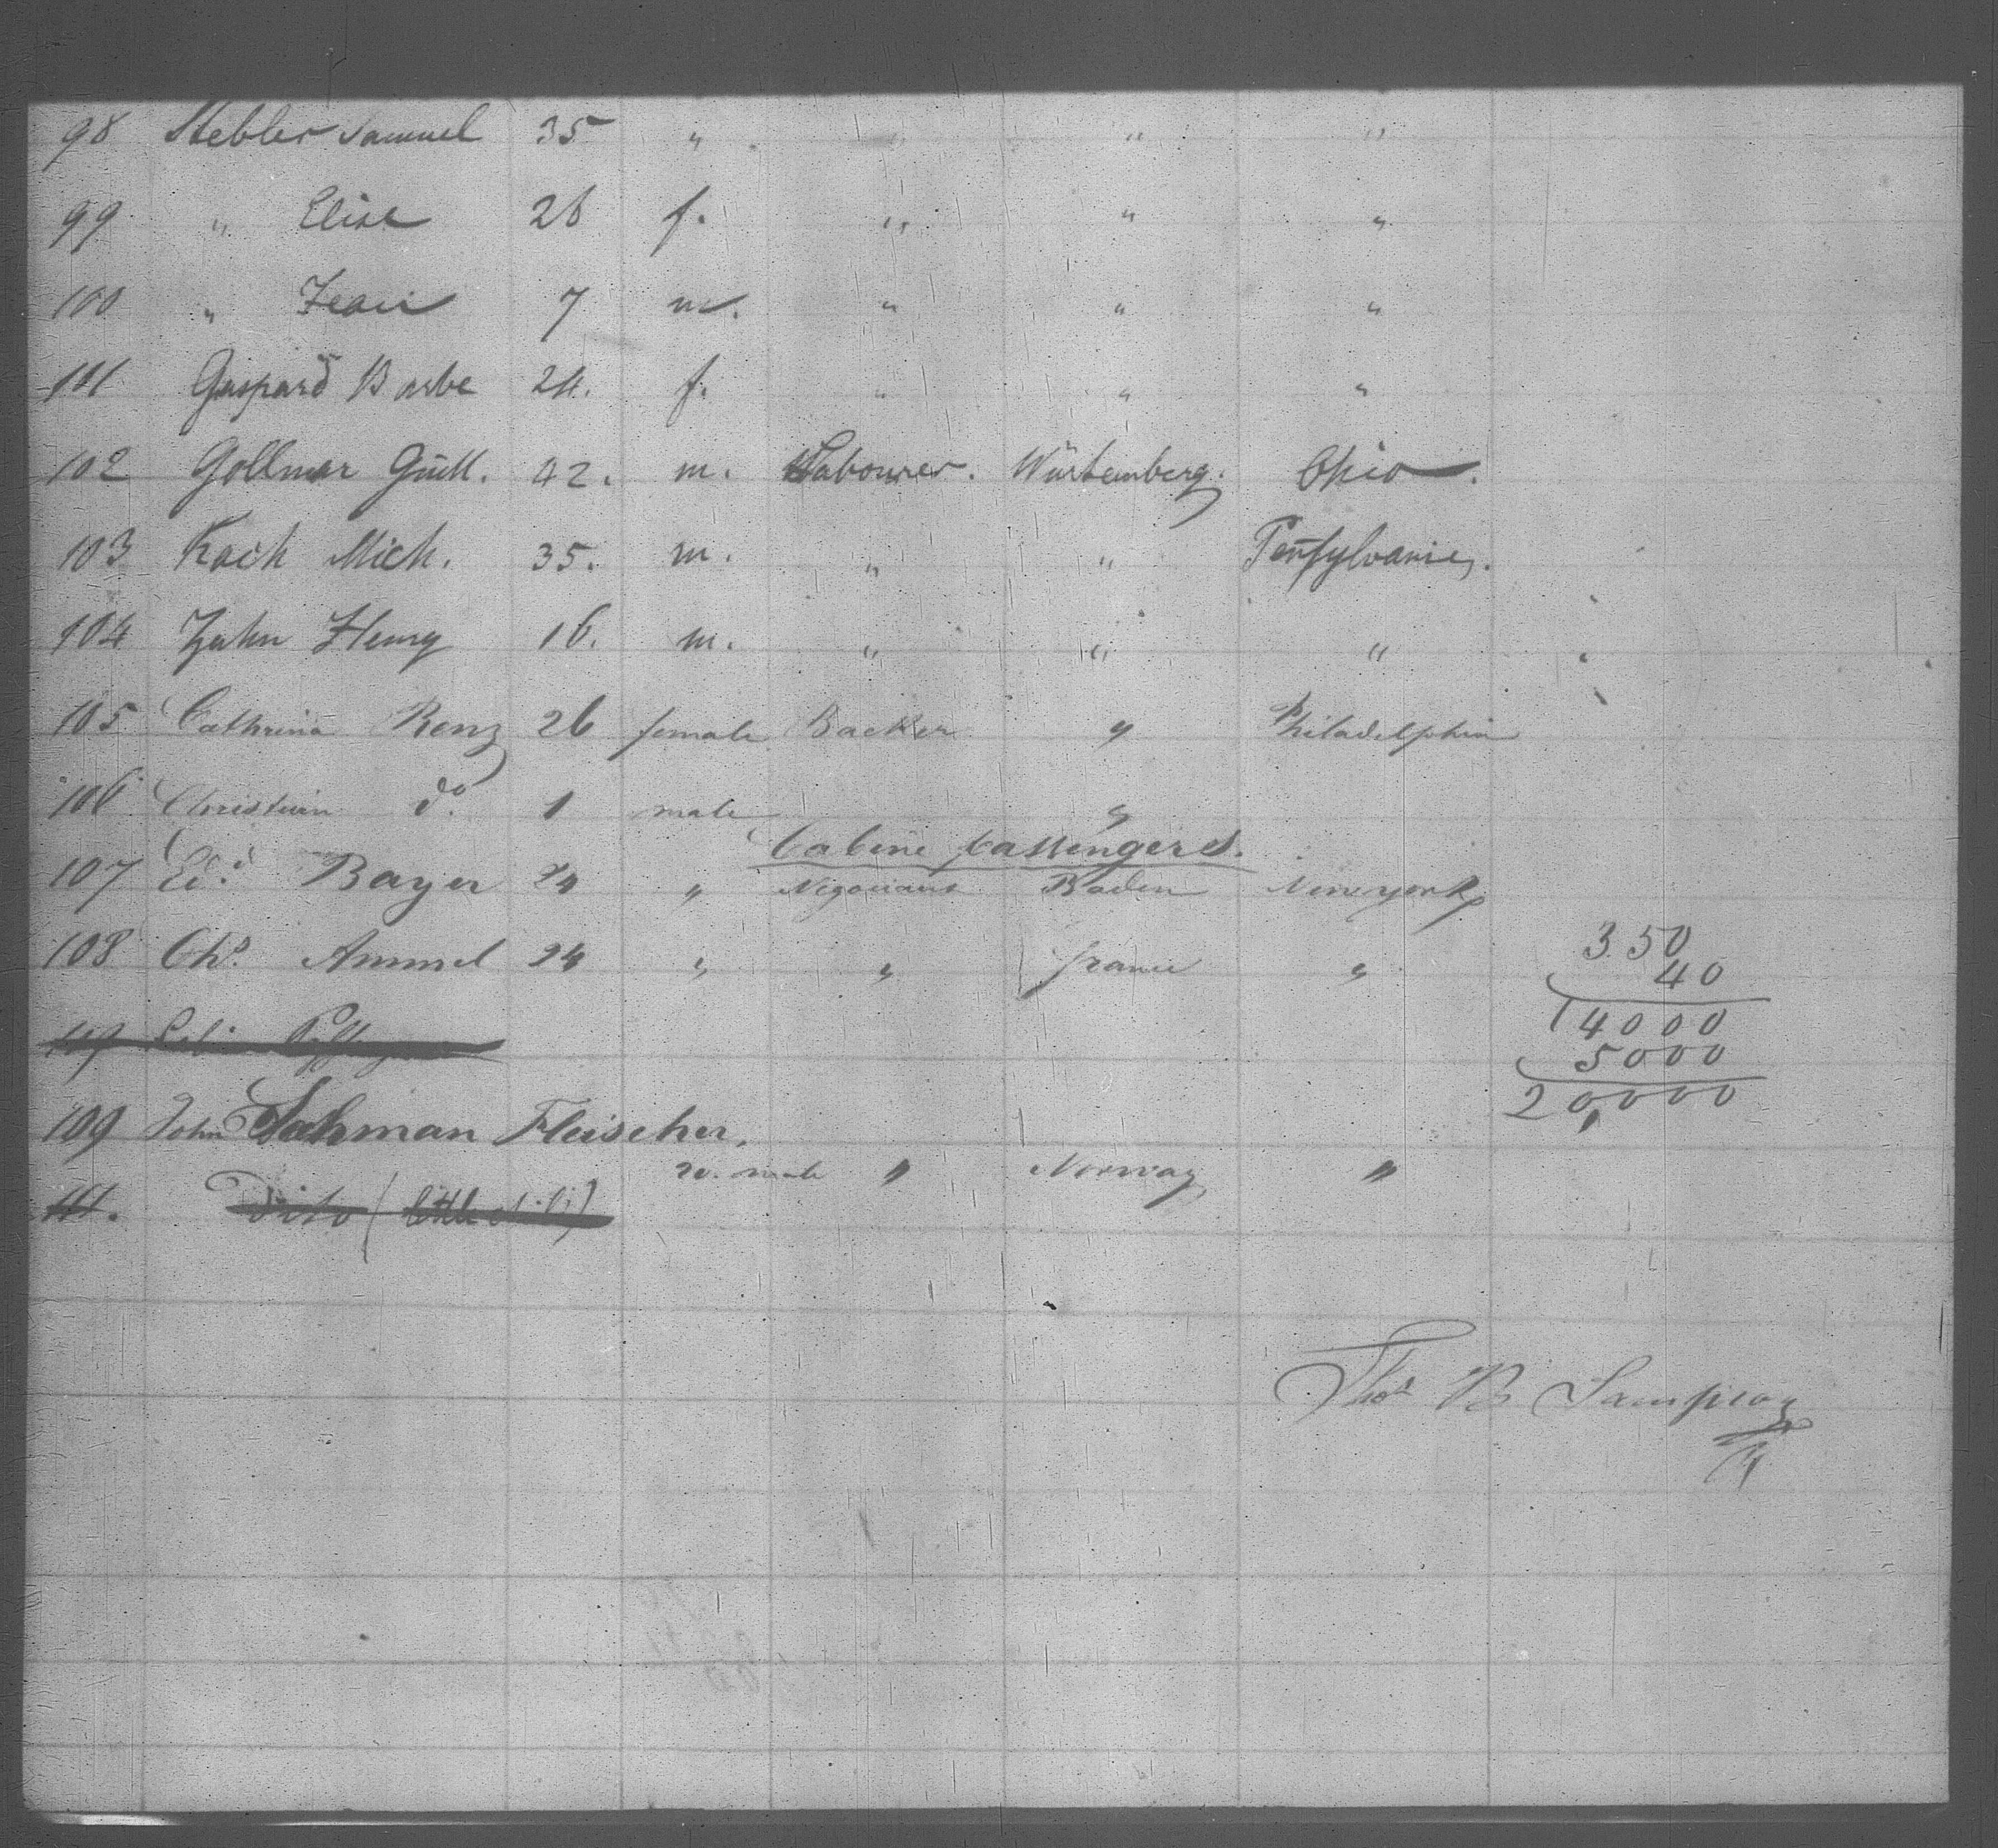 98 Stebler Samuel 35 " " " "
99 " Elise 26 f. " " "
100 " Jean 7 m. " " "
101 Gaspard Barbe 24. f. " " "
102 Gollmar Guill. 42. m. Labourer. Würtemberg. Ohio.
103 Koch Mich. 35. m. " " Pensylvanie.
104 Zahn Henry 16. m. " " "
105 Cathrina Renz 26 female Backer " Philadelphia
106 Christian do. 1 male "
Cabine passengers.
107 Ed. Bayer 24 " Negociant Baden New york
108 Chs. Ammel 24 " " france "
3.50
40
14000
5000
20,000
109 John Sahman Fleischer.
20. male " Norway "
Dito (little child)
Thos B Sampson